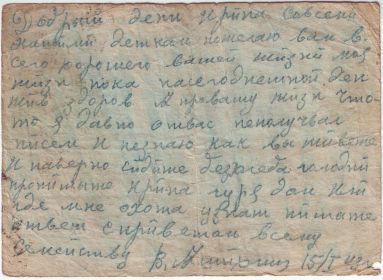 Добрый день Ирина совсеми
нашими деткам пожелаю вам в
сего хорошего вашей жизни моя
жизн пока насегоднешной ден
жив здоров А провашу жизн что
то я давно отвас неполучал
писем И незнаю как вы живете
И наверно сидите безхлеба голодні
пропишите Ирина
где мне охота узнат пишите
ответ спреветам всему
семейству В. 15/I 43 г